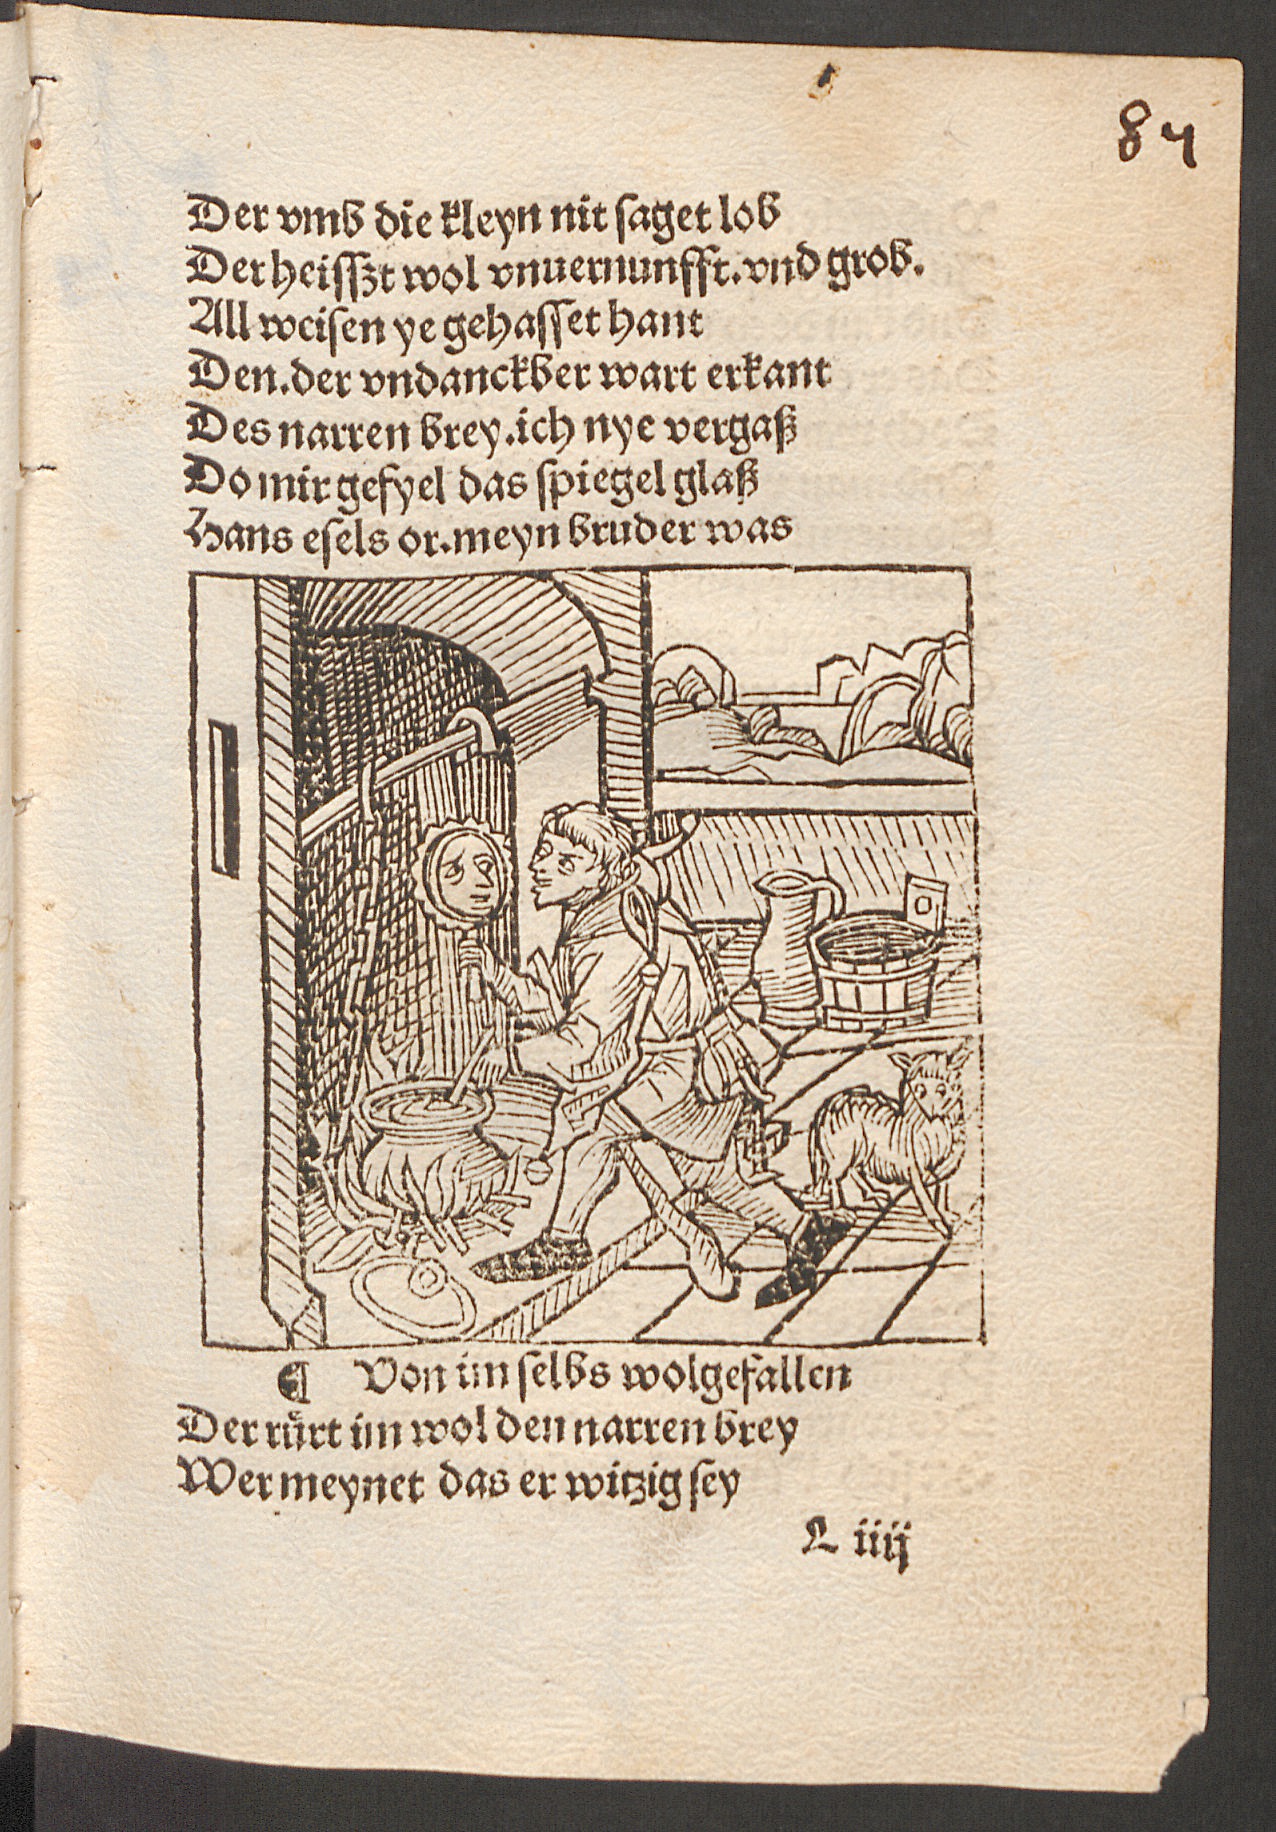 84
Der vmb die kleyn nit ſaget lob
Der heiſſzt wol vnuernunfft. vnd grob.
All weiſen ye gehaſſet hant
Den. der vndanckber wart erkant
Des narren brey. ich nye vergaß
Do mir gefyel das ſpiegel glaß
Hans eſels or. meyn bruder was
¶ Von im ſelbs wolgefallen
Der ruͤrt im wol den narren brey
Wer meynet das er witzig ſey
L iiij